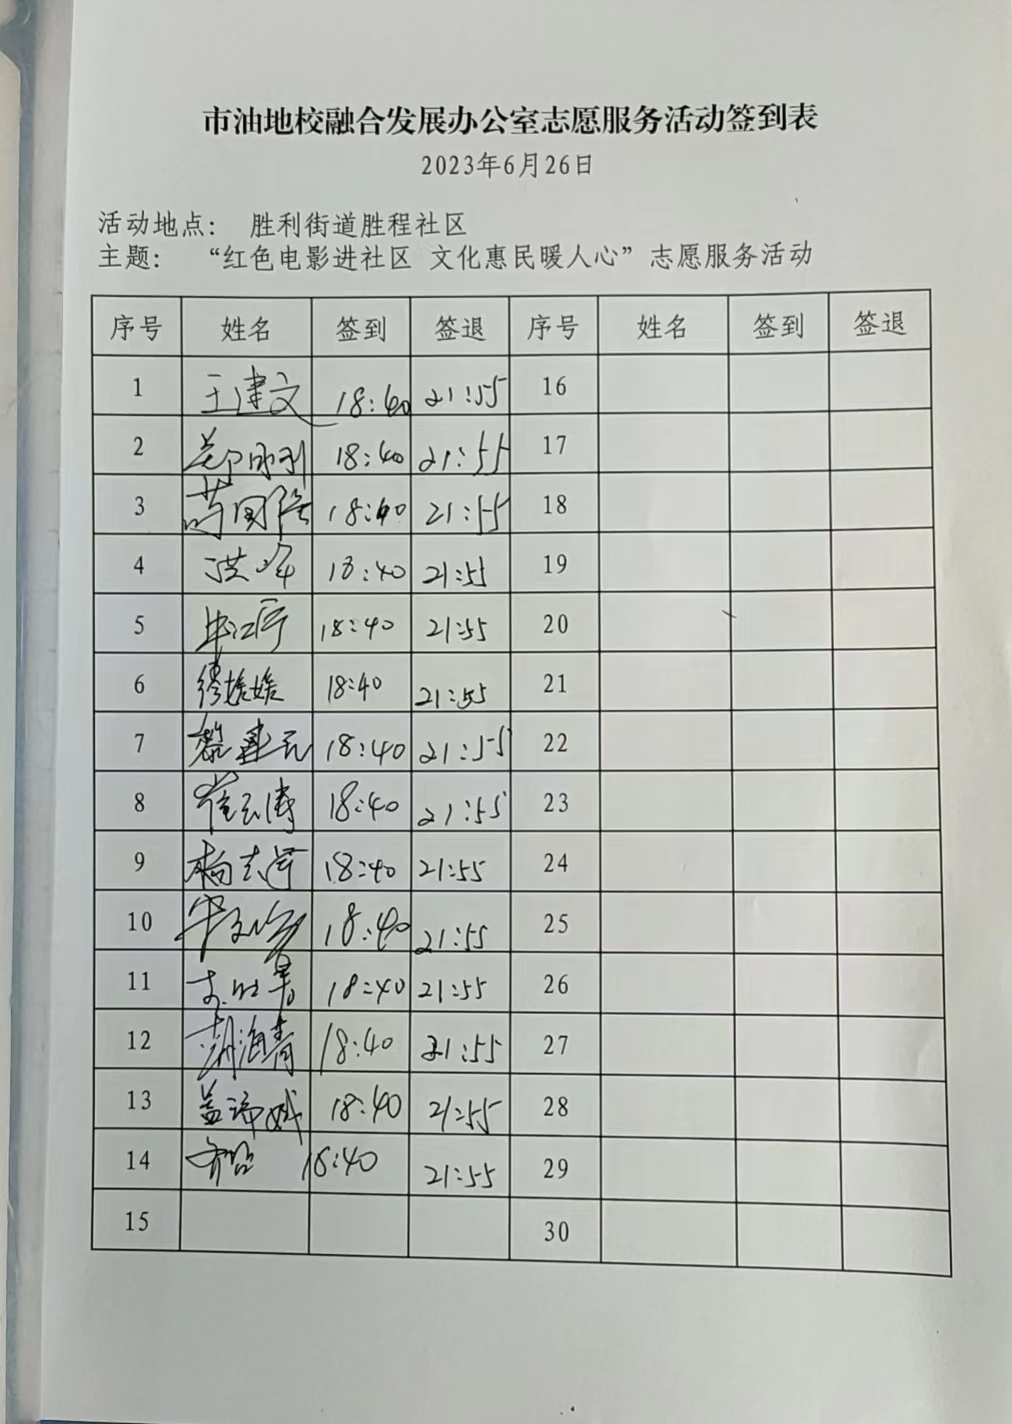 市油地校融合发展办公室志愿服务活动签到表
2023年6月26日
活动地点： 胜利街道胜程社区
主题： “红色电影进社区 文化惠民暖人心”志愿服务活动
序号 姓名 签到 签退 序号 姓名 签到 签退
1 王建文 18:40 21:55 16
2 18:40 21:55 17
3 18:40 21:55 18
4 洪峰 18:40 21:55 19
5 18:40 21:55 20
6 18:40 21:55 21
7 18:40 21:55 22
8 崔云涛 18:40 21:55 23
9 18:40 21:55 24
10 18:40 21:55 25
11 18:40 21:55 26
12 胡海青 18:40 21:55 27
13 18:40 21:55 28
14 18:40 21:55 29
15 30